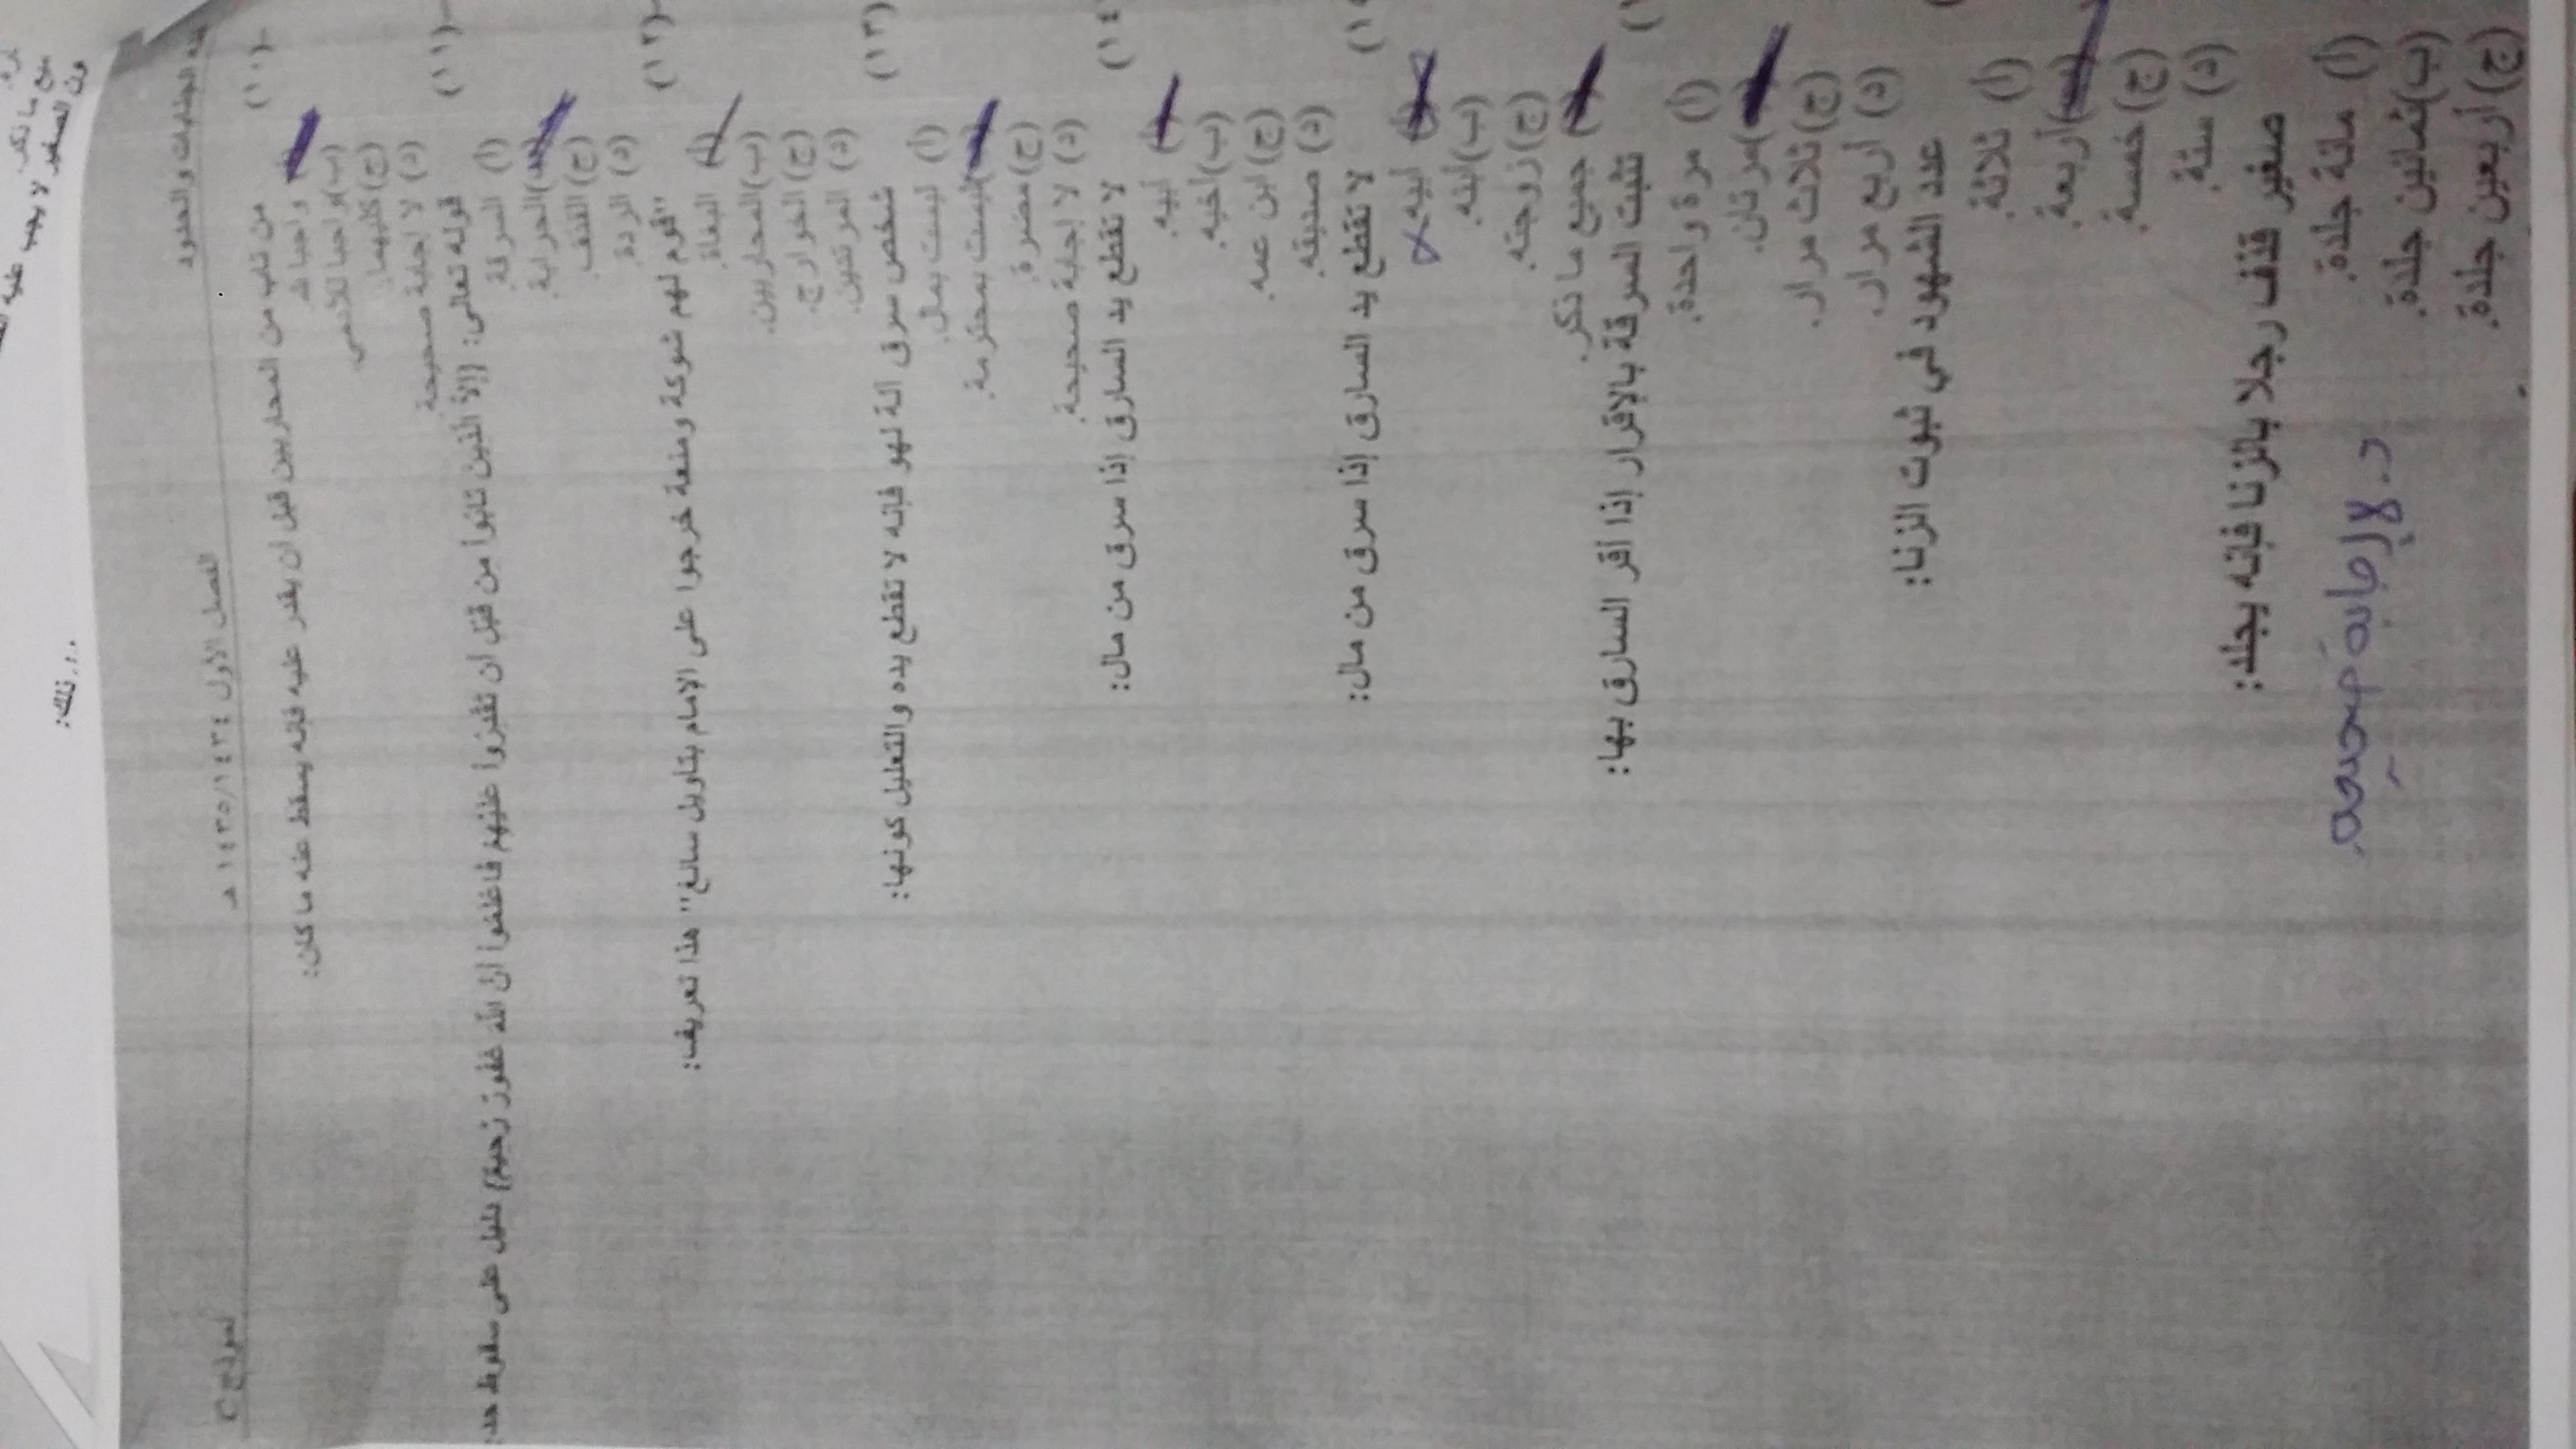 فقه الجنايات والحدود الفصل الأول ١٤٣٥/١٤٣٤ هـ نموذج C
(١٠)- من تاب من المحاربين قبل أن يقدر عليه فإنه يسقط عنه ما كان:
واجبا لله
(ب) واجبا للآدمي
(ج) كليهما.
(د) لا اجابة صحيحة
(١١)- قوله تعالى: {إلاَّ الَّذِينَ تَابُواْ مِن قَبْلِ أَن تَقْدِرُواْ عَلَيْهِمْ فَاعْلَمُواْ أَنَّ اللّهَ غَفُورٌ رَّحِيمٌ} دليل على سقوط حد:
(أ) السرقة
الحرابة.
(ج) القذف
(د) الردة
(١٢)- "قوم لهم شوكة ومنعة خرجوا على الإمام بتأويل سائغ" هذا تعريف:
البغاة.
(ب) المحاربين.
(ج) الخوارج.
(د) المرتدين.
(١٣) شخص سرق آلة لهو فإنه لا تقطع يده والتعليل كونها:
(أ) ليست بمال.
ليست بمحترمة.
(ج) مضرة.
(د) لا إجابة صحيحة.
(١٤ لا تقطع يد السارق إذا سرق من مال:
أبيه.
(ب) أخيه.
(ج) ابن عمه.
(د) صديقه.
لا تقطع يد السارق إذا سرق من مال:
أبيه.
(ب) ابنه.
(ج) زوجته.
جميع ما ذكر.
تثبت السرقة بالإقرار إذا أقر السارق بها:
(أ) مرة واحدة.
مرتان.
(ج) ثلاث مرار.
(د) أربع مرار.
عدد الشهود في ثبوت الزنا:
(أ) ثلاثة.
أربعة.
(ج) خمسة.
(د) ستة.
صغير قذف رجلا بالزنا فإنه يجلد:
(أ) مائة جلدة.
(ب) ثمانين جلدة.
(ج) أربعين جلدة.
د. لا إجابة صحيحة.